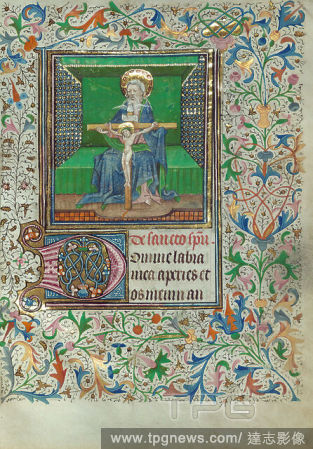 De sancto spu
Domine labia
mea aperies et
os meum an
TPG
www.tpgnews.com/ 達志影像